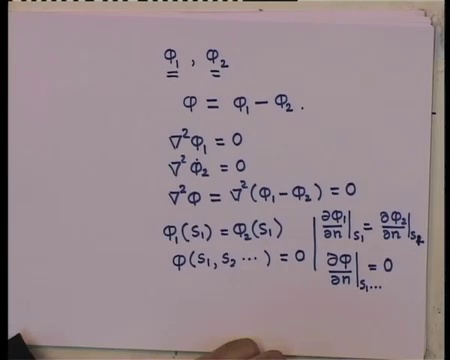 φ₁ , φ₂
φ = φ₁ − φ₂ .
∇²φ₁ = 0
∇²φ₂ = 0
∇²φ = ∇²(φ₁ − φ₂) = 0
φ₁(S₁) = φ₂(S₁) | ∂φ₁/∂n|S₁ = ∂φ₂/∂n|S₂
φ(S₁, S₂ ⋯ ) = 0 | ∂φ/∂n|S₁... = 0